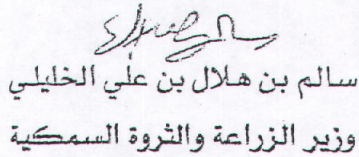 سالم بن هلال بن علي الخليلي
وزير الزراعة والثروة السمكية